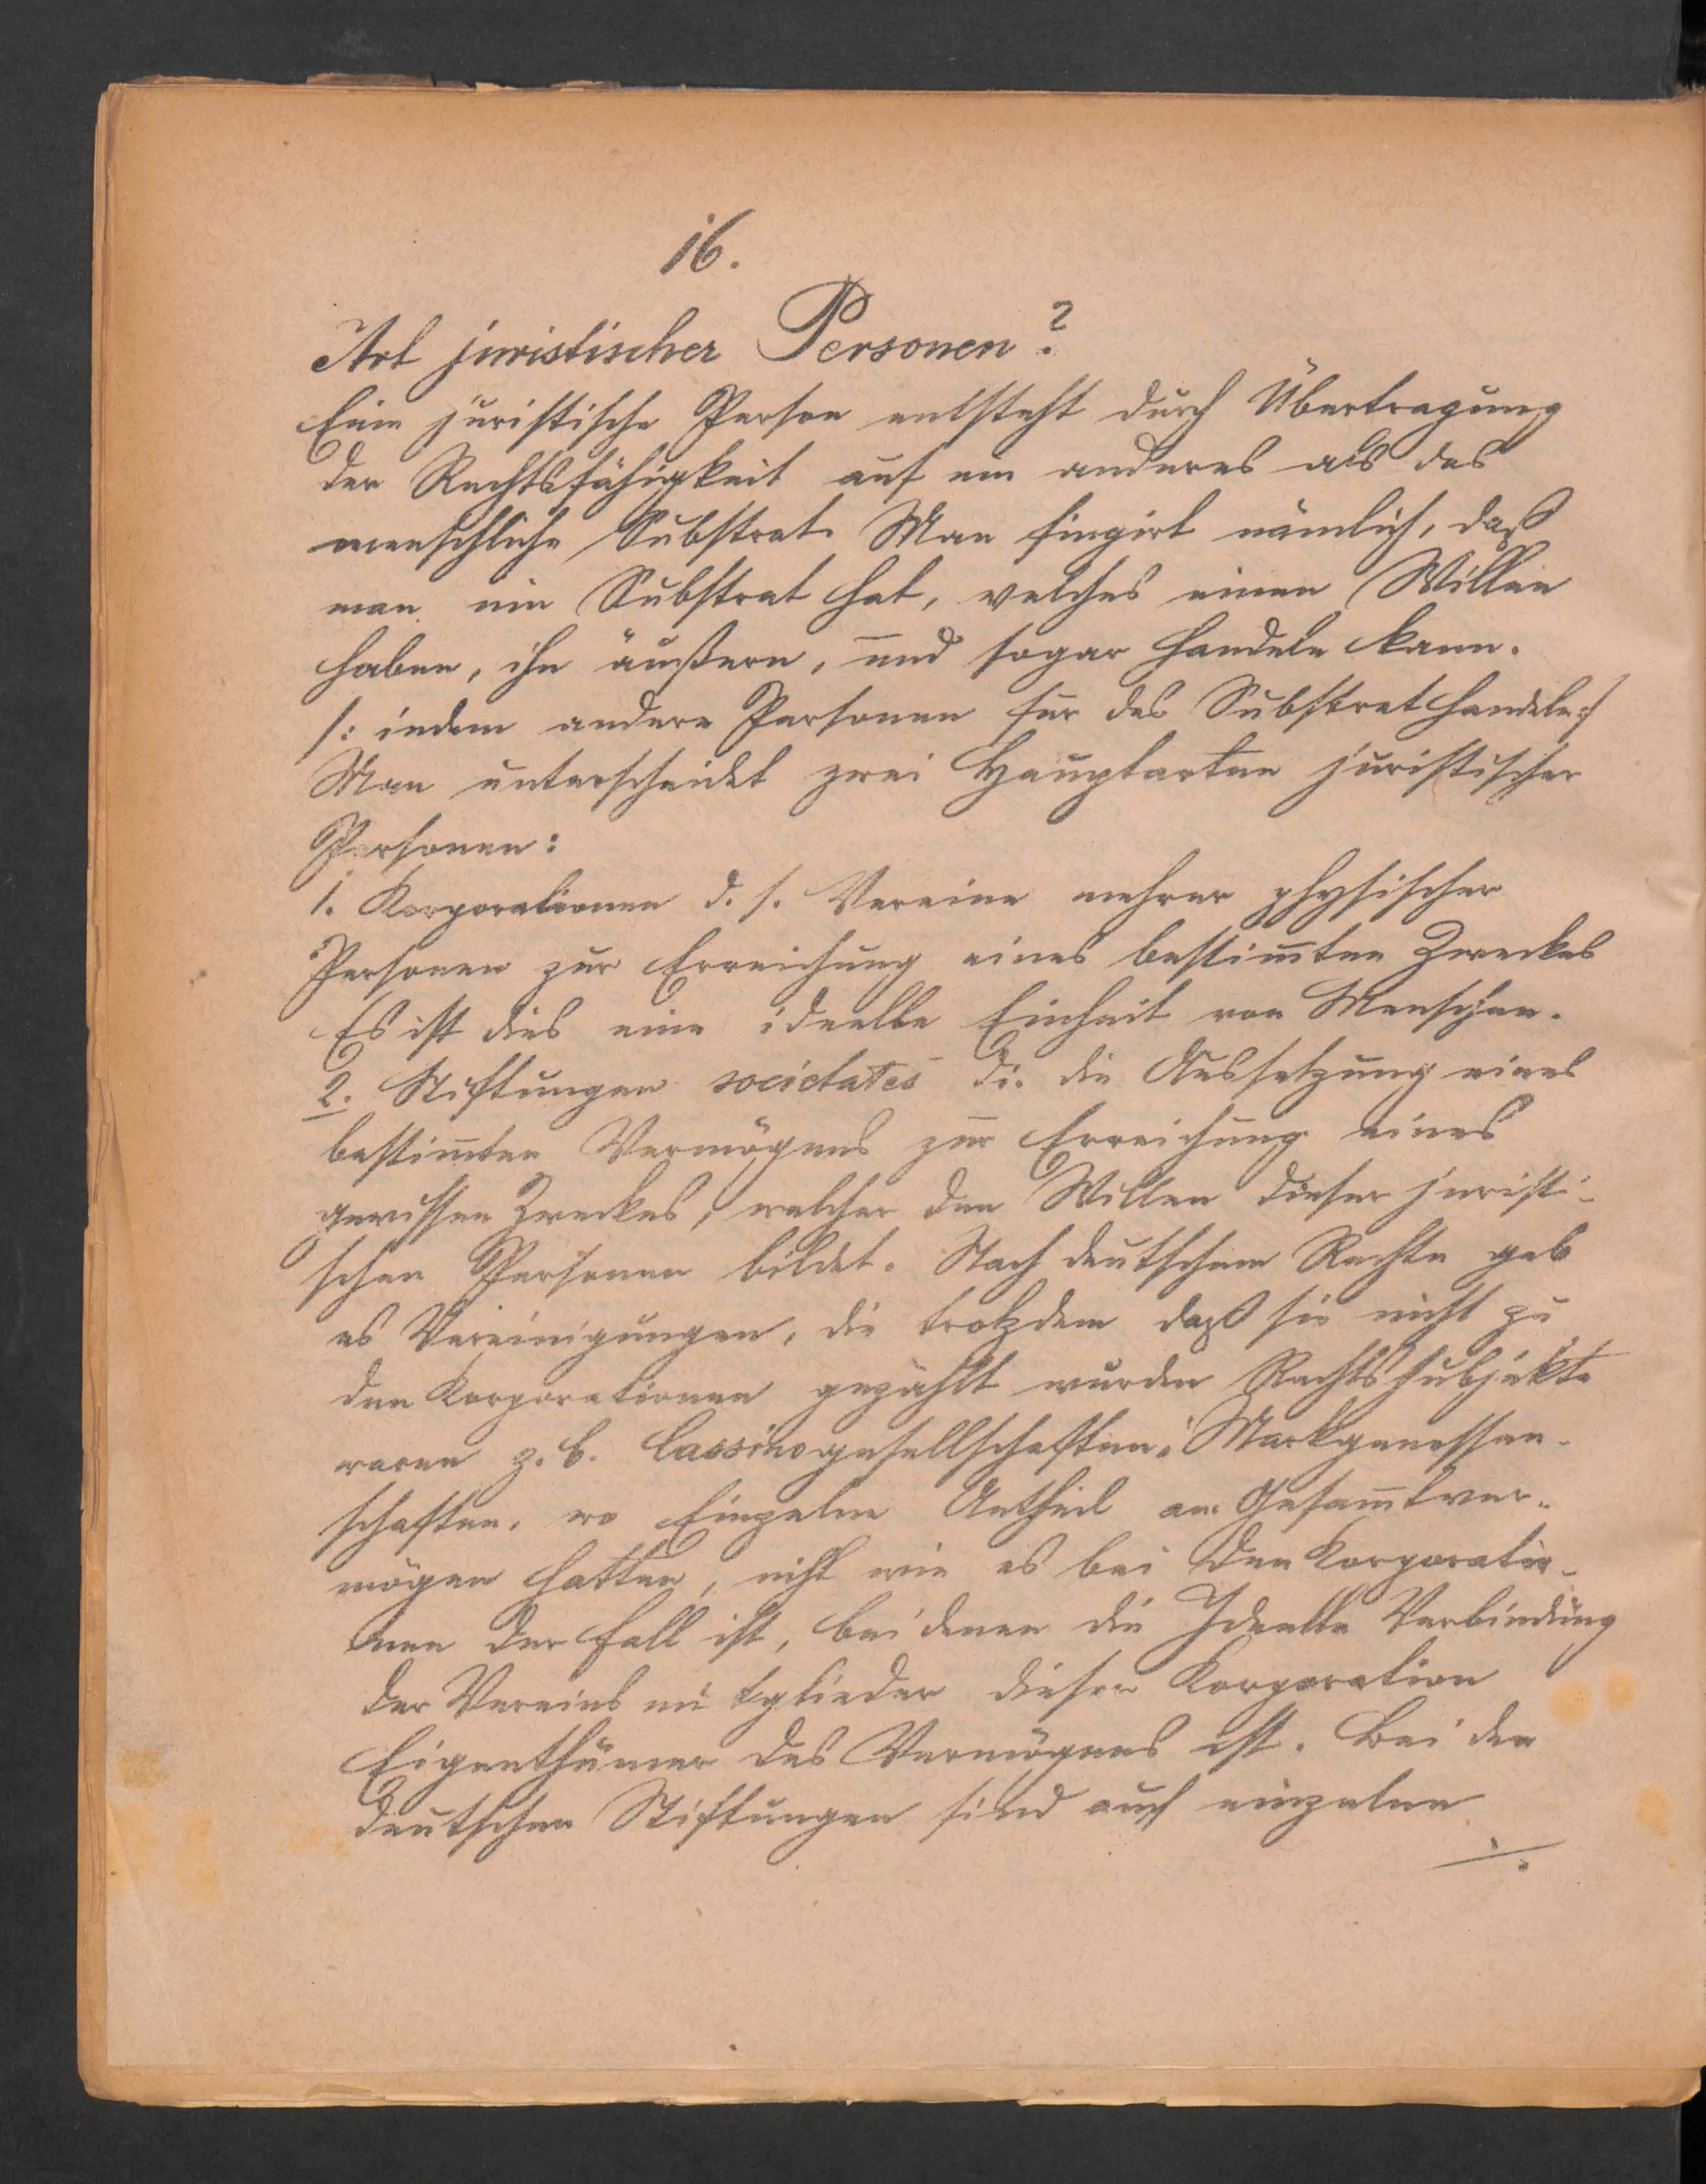 16.
Art juristischer Personen?
Eine juristische Person entsteht durch Übertragung
der Rechtsfähigkeit auf ein anderes als das
menschliche Substrat. Man fingirt nämlich, daß
man ein Substrat hat, welches einen Willen
haben, ihn äußern, und sogar handeln kann.
/: indem andere Personen für das Substrat handeln :/
Man unterscheidet zwei Hauptarten juristischer
Personen:
1. Korporationen d. s. Vereine mehrer physischer
Personen zur Erreichung eines bestim̅ten Zweckes
Es ist dies eine ideelle Einheit von Menschen.
2. Stiftungen societates d.i. die Aussetzung eines
bestim̅ten Vermögens zur Erreichung eines
gewissen Zweckes, welcher den Willen dieser juristi-
schen Personen bildet. Nach deutschem Rechte gab
es Vereinigungen, die trotzdem daß sie nicht zu
den Korporationen gezählt wurden Rechtssubjekte
waren z. B. Cassinogesellschaften, Markgenossen-
schaften, wo Einzelne Antheil am Gesam̅tver-
mögen hatten, nicht wie es bei den Korporatio-
nen der Fall ist, bei denen die Ideelle Verbindung
der Vereins mitglieder dieser Korporation
Eigenthümer des Vermögens ist. Bei den
deutschen Stiftungen sind auch einzelne
./.